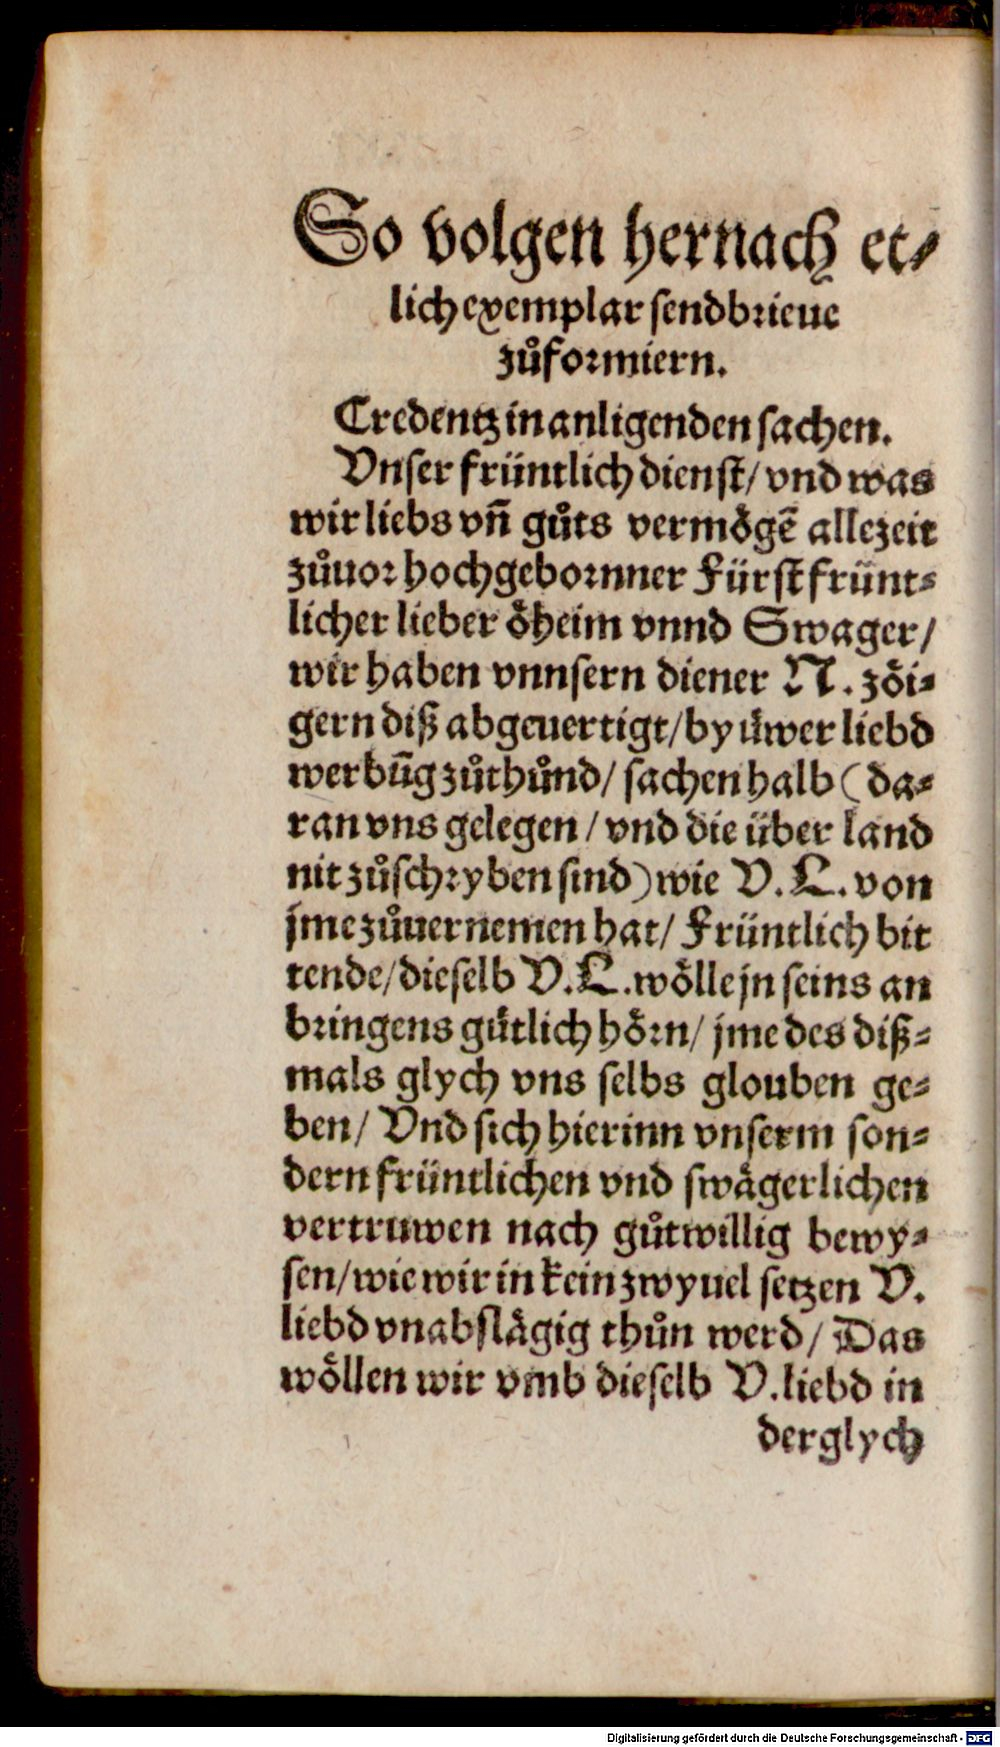 So volgen hernach et⸗
lich exemplar sendbrieue
zůformiern.
Credentz in anligenden sachen.
Vnser früntlich dienst/ vnd was
wir liebs vñ gůts vermögẽ allezeit
zůuor hochgebornner Fürst frünt⸗
licher lieber öheim vnnd Swager/
wir haben vnnsern diener N. zöi⸗
gern diß abgeuertigt/ by üwer liebd
werbũg zůthůnd/ sachen halb (da⸗
ran vns gelegen / vnd die über land
nit zůschryben sind) wie V. L. von
jme zůuernemen hat/ Früntlich bit
tende/ dieselb V. L. wölle jn seins an
bringens gütlich hörn/ jme des diß⸗
mals glych vns selbs glouben ge⸗
ben/ Vnd sich hierinn vnserm son⸗
dern früntlichen vnd swägerlichen
vertruwen nach gůtwillig bewy⸗
sen/ wie wir in kein zwyuel setzen V.
liebd vnabslägig thůn werd/ Das
wöllen wir vmb dieselb V. liebd in
derglych
Digitalisierung gefördert durch die Deutsche Forschungsgemeinschaft - DFG